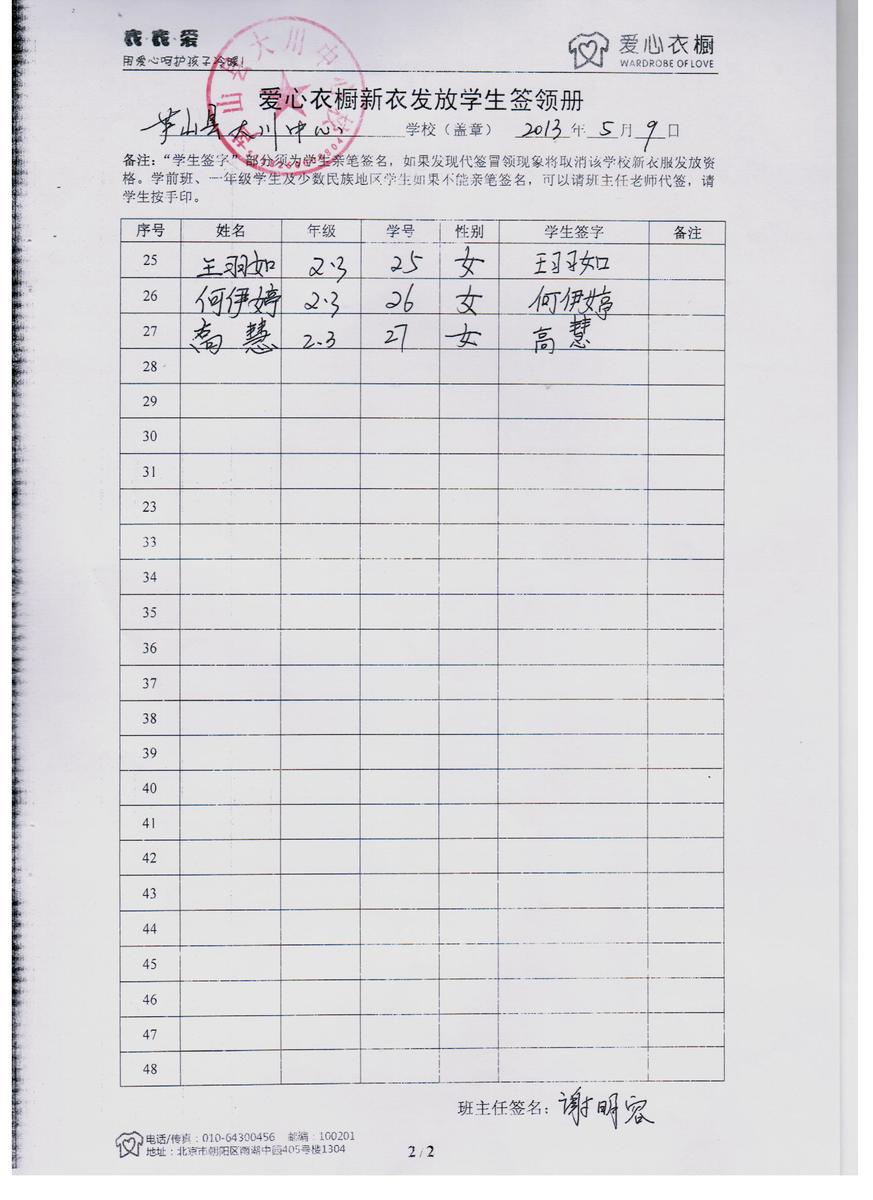 衣衣爱
用爱心呵护孩子冷暖！
爱心衣橱
WARDROBE OF LOVE
爱心衣橱新衣发放学生签领册
芦山县大川中心 学校（盖章） 2013年5月9日
备注：“学生签字”部分须为学生亲笔签名，如果发现代签冒领现象将取消该学校新衣服发放资
格。学前班、一年级学生及少数民族地区学生如果不能亲笔签名，可以请班主任老师代签，请
学生按手印。
序号 姓名 年级 学号 性别 学生签字 备注
25 王羽如 2.3 25 女 王羽如
26 何伊婷 2.3 26 女 何伊婷
27 高慧 2.3 27 女 高慧
28
29
30
31
23
33
34
35
36
37
38
39
40
41
42
43
44
45
46
47
48
班主任签名：谢明容
电话/传真：010-64300456 邮编：100201
地址：北京市朝阳区南湖中园405号楼1304
2/2